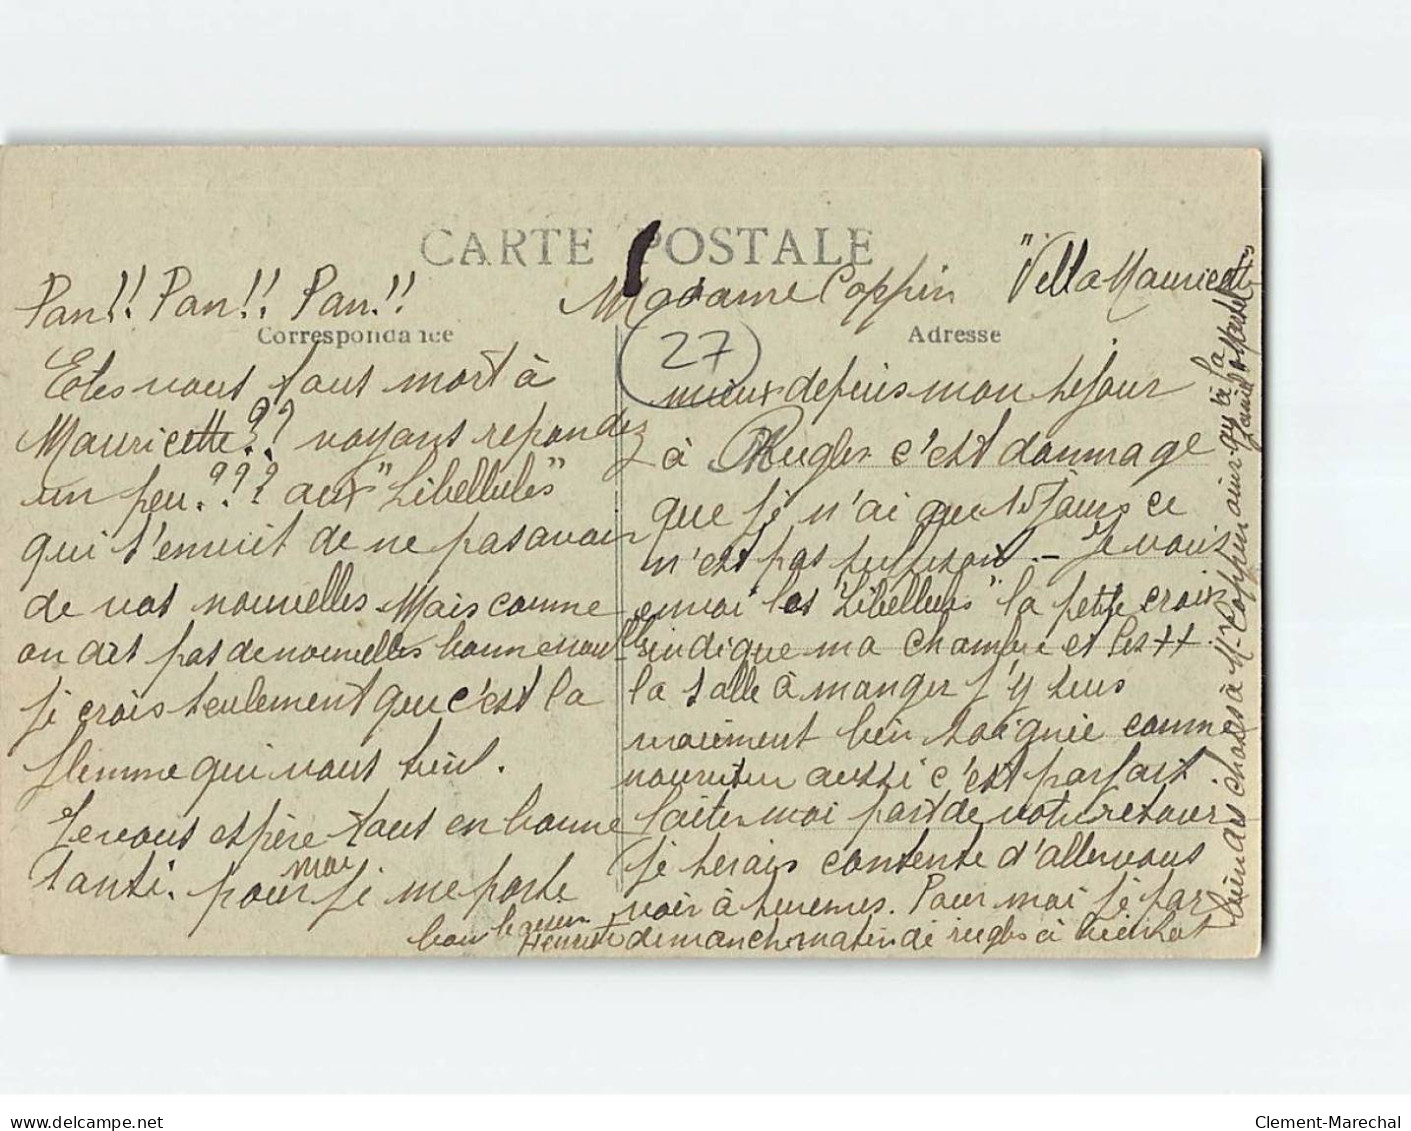 CARTE POSTALE
Correspondance
Pan!! Pan!! Pan!!
Etes vous tous mort à
Mauricette?? voyons repondez
un peu.??? aux "Libellules"
qui s'ennuit de ne pas avoir
de vos nouvelles Mais comme
on dit pas de nouvelles bonne nouvelles
je crois seulement que c'est la
flemme qui vous tient.
Je vous espère tous en bonne
santé. pour moi je me porte
Adresse
Madame Coppin "Villa Mauricette
27
mieux depuis mon sejour
à Rugles c'est dommage
que je n'ai que 15 jours ce
n'est pas suffisant - Je vous
envoi les "Libellules" la petite croix
indique ma chambre et les ++
la salle à manger j'y suis
vraiment bien soignée comme
nourriture aussi c'est parfait.
faites moi part de votre retour
je serais contente d'aller vous
voir à . Pour moi je par
dimanche matin de rugles à
bon baiser
Henriette
bien des choses à Mr Coppin ainsi qu'à la
famille
delcampe.net
Clement-Marechal